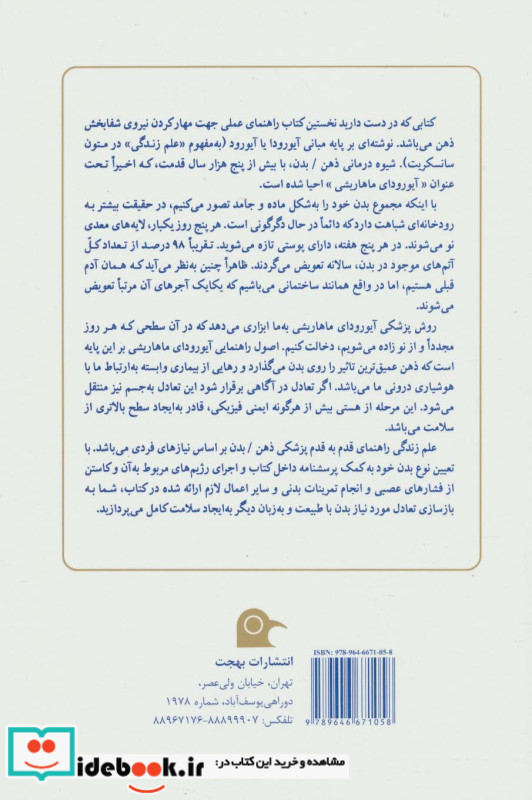 کتابی که در دست دارید نخستین کتاب راهنمای عملی جهت مهار کردن نیروی شفابخش
ذهن می‌باشد. نوشته‌ای بر پایه مبانی آیورودا یا آیورود (به‌مفهوم «علم زندگی» در متون
سانسکریت). شیوه درمانی ذهن / بدن، با بیش از پنج هزار سال قدمت، که اخیراً تحت
عنوان «آیورودای ماهاریشی» احیا شده است.
با اینکه مجموع بدن خود را به‌شکل ماده و جامد تصور می‌کنیم، در حقیقت بیشتر به
رودخانه‌ای شباهت دارد که دائماً در حال دگرگونی است. هر پنج روز یکبار، لایه‌های معدی
نو می‌شوند. در هر پنج هفته، دارای پوستی تازه می‌شوید. تقریباً ۹۸ درصد از تعداد کلّ
آتم‌های موجود در بدن، سالانه تعویض می‌گردند. ظاهراً چنین به‌نظر می‌آید که همان آدم
قبلی هستیم، اما در واقع همانند ساختمانی می‌باشیم که یکایک آجرهای آن مرتباً تعویض
می‌شوند.
روش پزشکی آیورودای ماهاریشی به‌ما ابزاری می‌دهد که در آن سطحی که هر روز
مجدداً و از نو زاده می‌شویم، دخالت کنیم. اصول راهنمایی آیورودای ماهاریشی بر این پایه
است که ذهن عمیق‌ترین تاثیر را روی بدن می‌گذارد و رهایی از بیماری وابسته به‌ارتباط ما با
هوشیاری درونی ما می‌باشد. اگر تعادل در آگاهی برقرار شود این تعادل به‌جسم نیز منتقل
می‌شود. این مرحله از هستی بیش از هرگونه ایمنی فیزیکی، قادر به‌ایجاد سطح بالاتری از
سلامت می‌باشد.
علم زندگی راهنمای قدم به قدم پزشکی ذهن / بدن بر اساس نیازهای فردی می‌باشد. با
تعیین نوع بدن خود به کمک پرسشنامه داخل کتاب و اجرای رژیم‌های مربوط به‌آن و کاستن
از فشارهای عصبی و انجام تمرینات بدنی و سایر اعمال لازم ارائه شده در کتاب، شما به
بازسازی تعادل مورد نیاز بدن با طبیعت و به‌زبان دیگر به‌ایجاد سلامت کامل می‌پردازید.
انتشارات بهجت
تهران، خیابان ولی‌عصر،
دوراهی یوسف‌آباد، شماره ۱۹۷۸
تلفکس: ۸۸۸۹۹۹۰۷-۸۸۹۶۷۱۷۶
ISBN: 978-964-6671-05-8
9 789646 671058
مشاهده و خرید این کتاب در:
idebook.ir